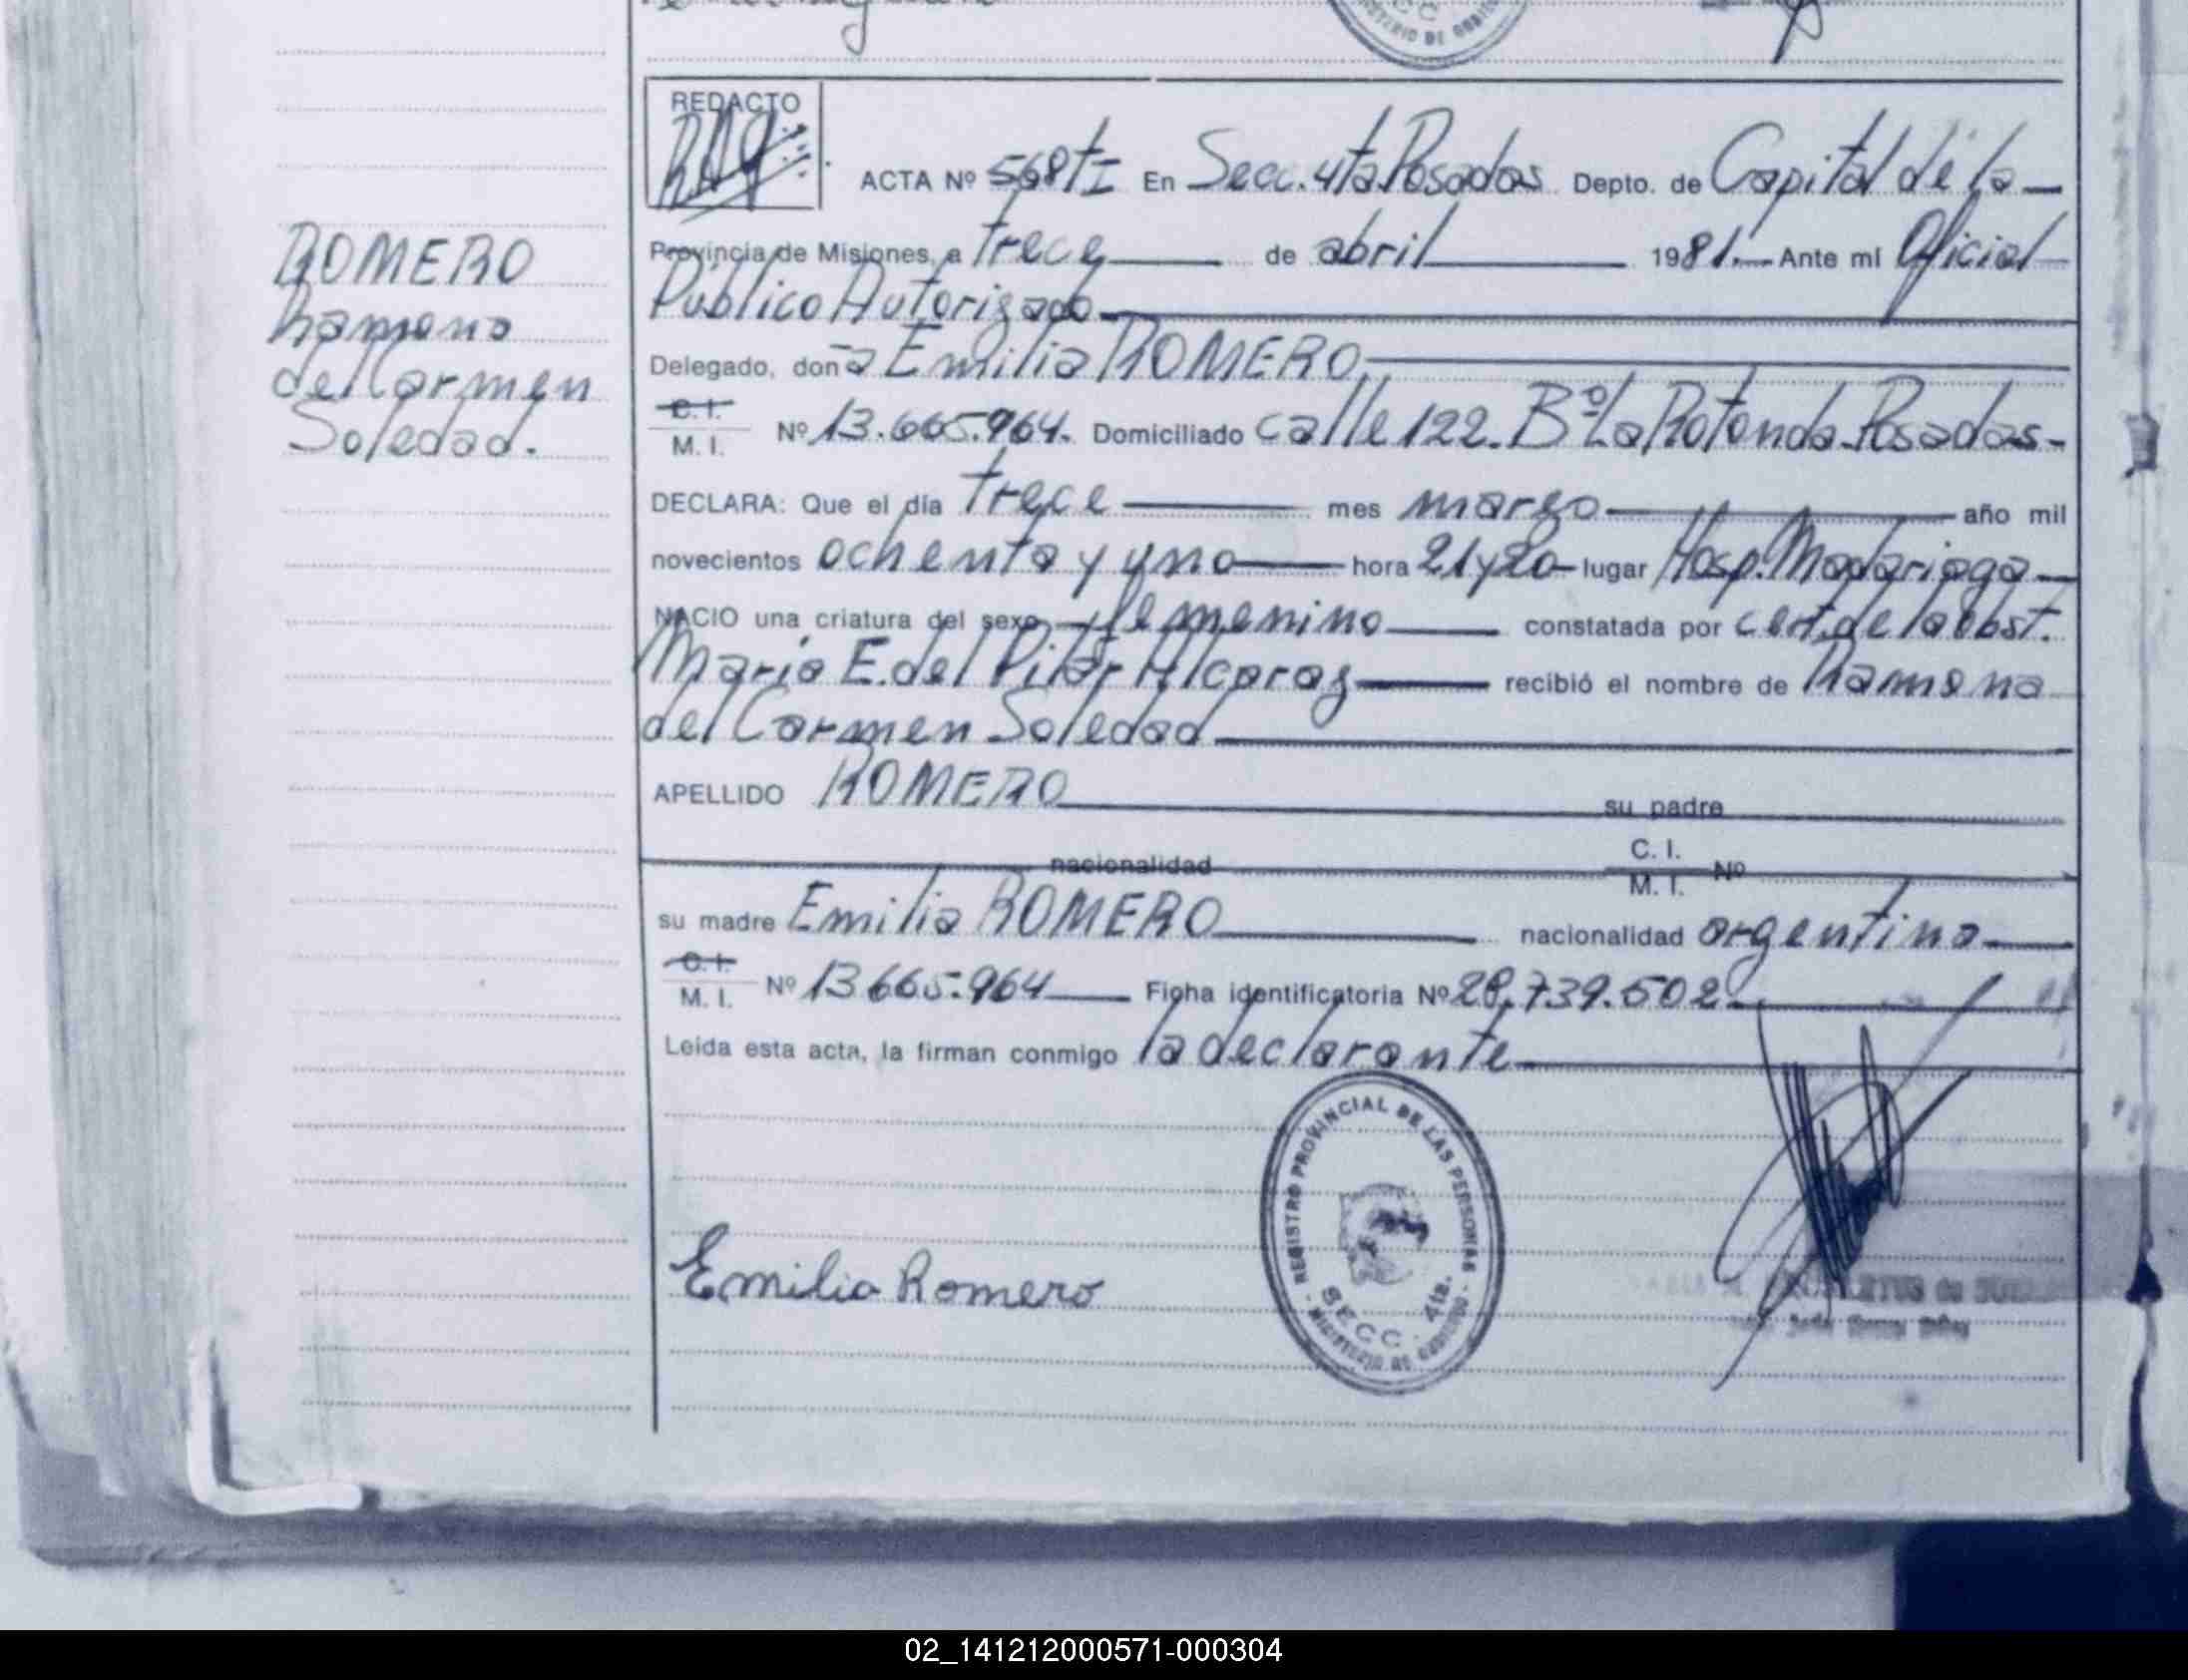 REDACTO
ACTA Nº 568 tI En Secc. 4ta. Posadas Depto. de Capital de la
Provincia de Misiones, a trece de abril 1981. Ante mí Oficial
Público Autorizado
Delegado, doña Emilia ROMERO
C. I.
M. I. Nº 13.665.964. Domiciliado calle 122. Bº La Rotonda Posadas
DECLARA: Que el día trece mes marzo año mil
novecientos ochenta y uno hora 21 y 20 lugar Hosp. Madariaga
NACIO una criatura del sexo femenino constatada por cert. de la obst.
María E. del Pilar Alcaraz recibió el nombre de Ramona
del Carmen Soledad
APELLIDO ROMERO su padre
nacionalidad C. I.
M. I. Nº
su madre Emilia ROMERO nacionalidad argentina
C. I.
M. I. Nº 13.665.964 Ficha identificatoria Nº 28.739.502
Leída esta acta, la firman conmigo la declarante
Emilia Romero
REGISTRO PROVINCIAL DE LAS PERSONAS
SECC. 4ta.
MINISTERIO DE GOBIERNO
ROMERO
Ramona
del Carmen
Soledad.
02_141212000571-000304